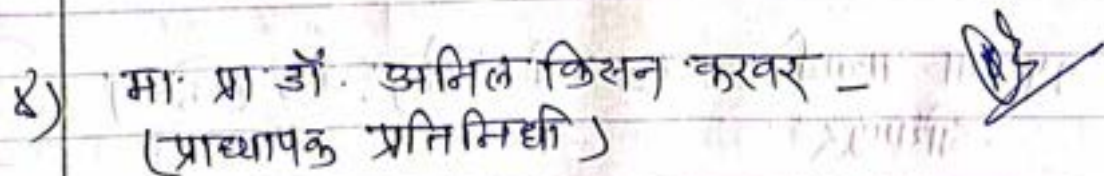 ४) मा. प्रा. डॉ. अनिल किसन करवर -
(प्राध्यापक प्रतिनिधी)